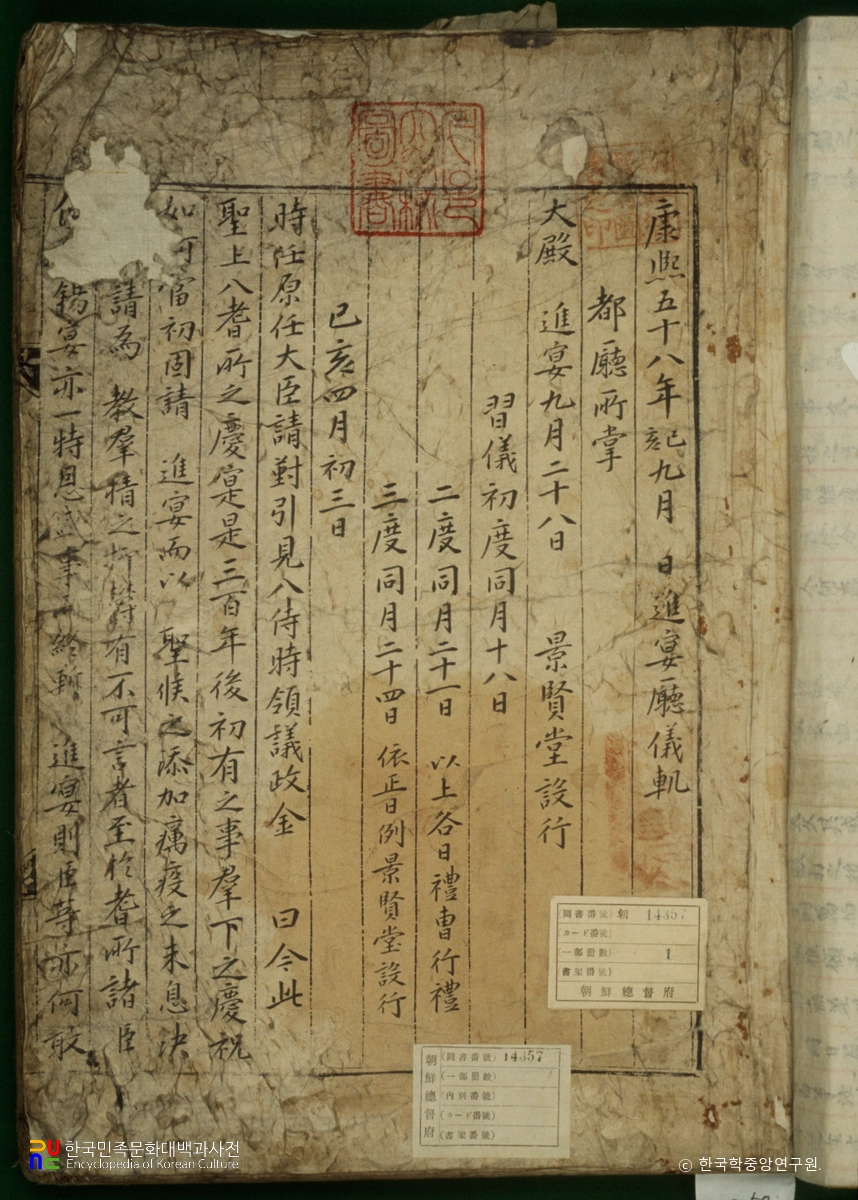 康熙五十八年己亥九月 日進宴廳儀軌
都廳所掌
大殿 進宴九月二十八日 景賢堂設行
習儀初度同月十八日
二度同月二十一日 以上各日禮曹行禮
三度同月二十四日 依正日例景賢堂設行
己亥四月初三日
時任原任大臣請對引見入侍時領議政金 曰今此
聖上入耆所之慶寔是三百年後初有之事羣下之慶祝
如何當初固請 進宴而以 聖候之添加癘疫之未息決
請為 教羣情之抑鬱有不可言者至於耆所諸臣
錫宴亦一特恩 事 終暫 進宴則臣等亦何敢
圖書番號 朝 14357
カード番號
一部冊數 1
書架番號
朝鮮總督府
朝鮮總督府
圖書番號 14357
一部冊數
內別番號
カード番號
書架番號
한국민족문화대백과사전
Encyclopedia of Korean Culture
© 한국학중앙연구원.